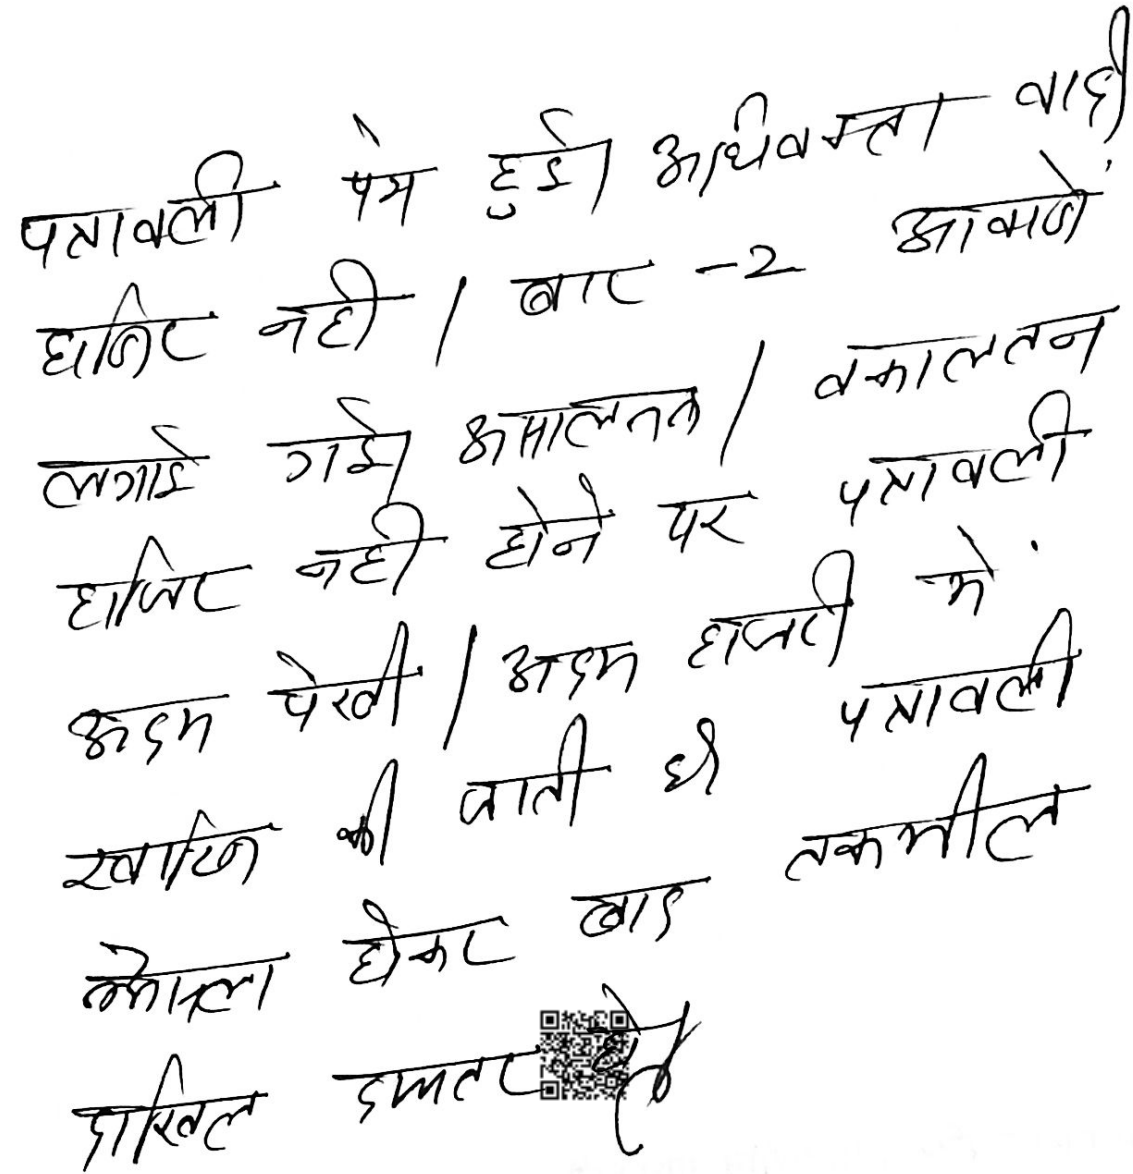 पत्रावली पेश हुई। अधिवक्ता वादी
हाजिर नही। बार -2 आवाजें
लगाई गई। असालतन। वकालतन
हाजिर नही होने पर पत्रावली
अदम पेरवी। अदम हाजरी में
खारिज की जाती है पत्रावली
फैसला होकर बाद तकमील
दाखिल दफ्तर हो